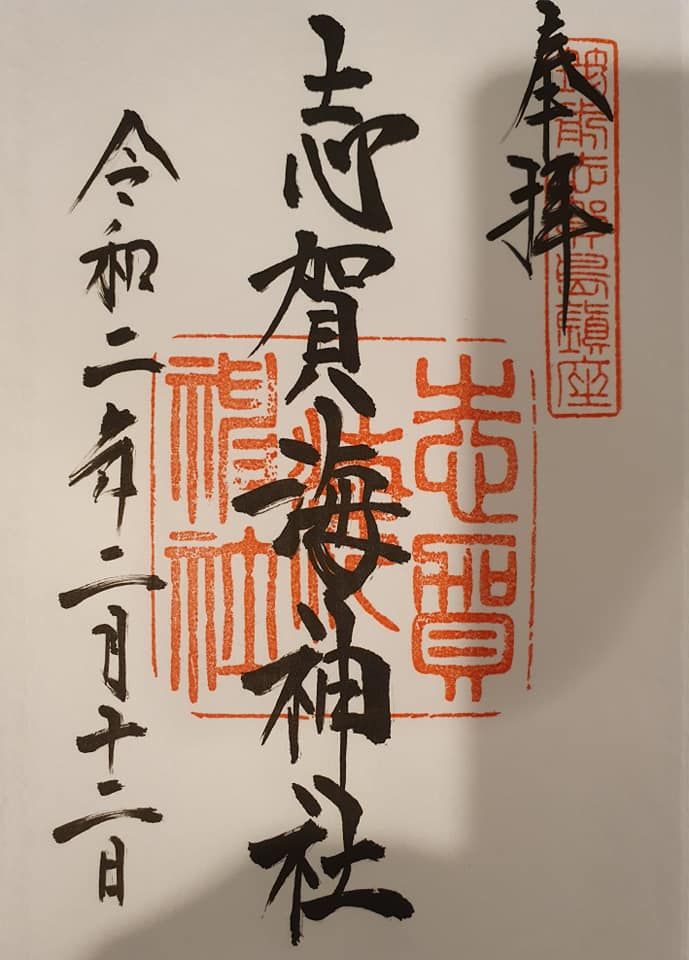 奉拝
筑前志賀島鎮座
志賀海神社
志賀
海
神社
令和二年二月十二日